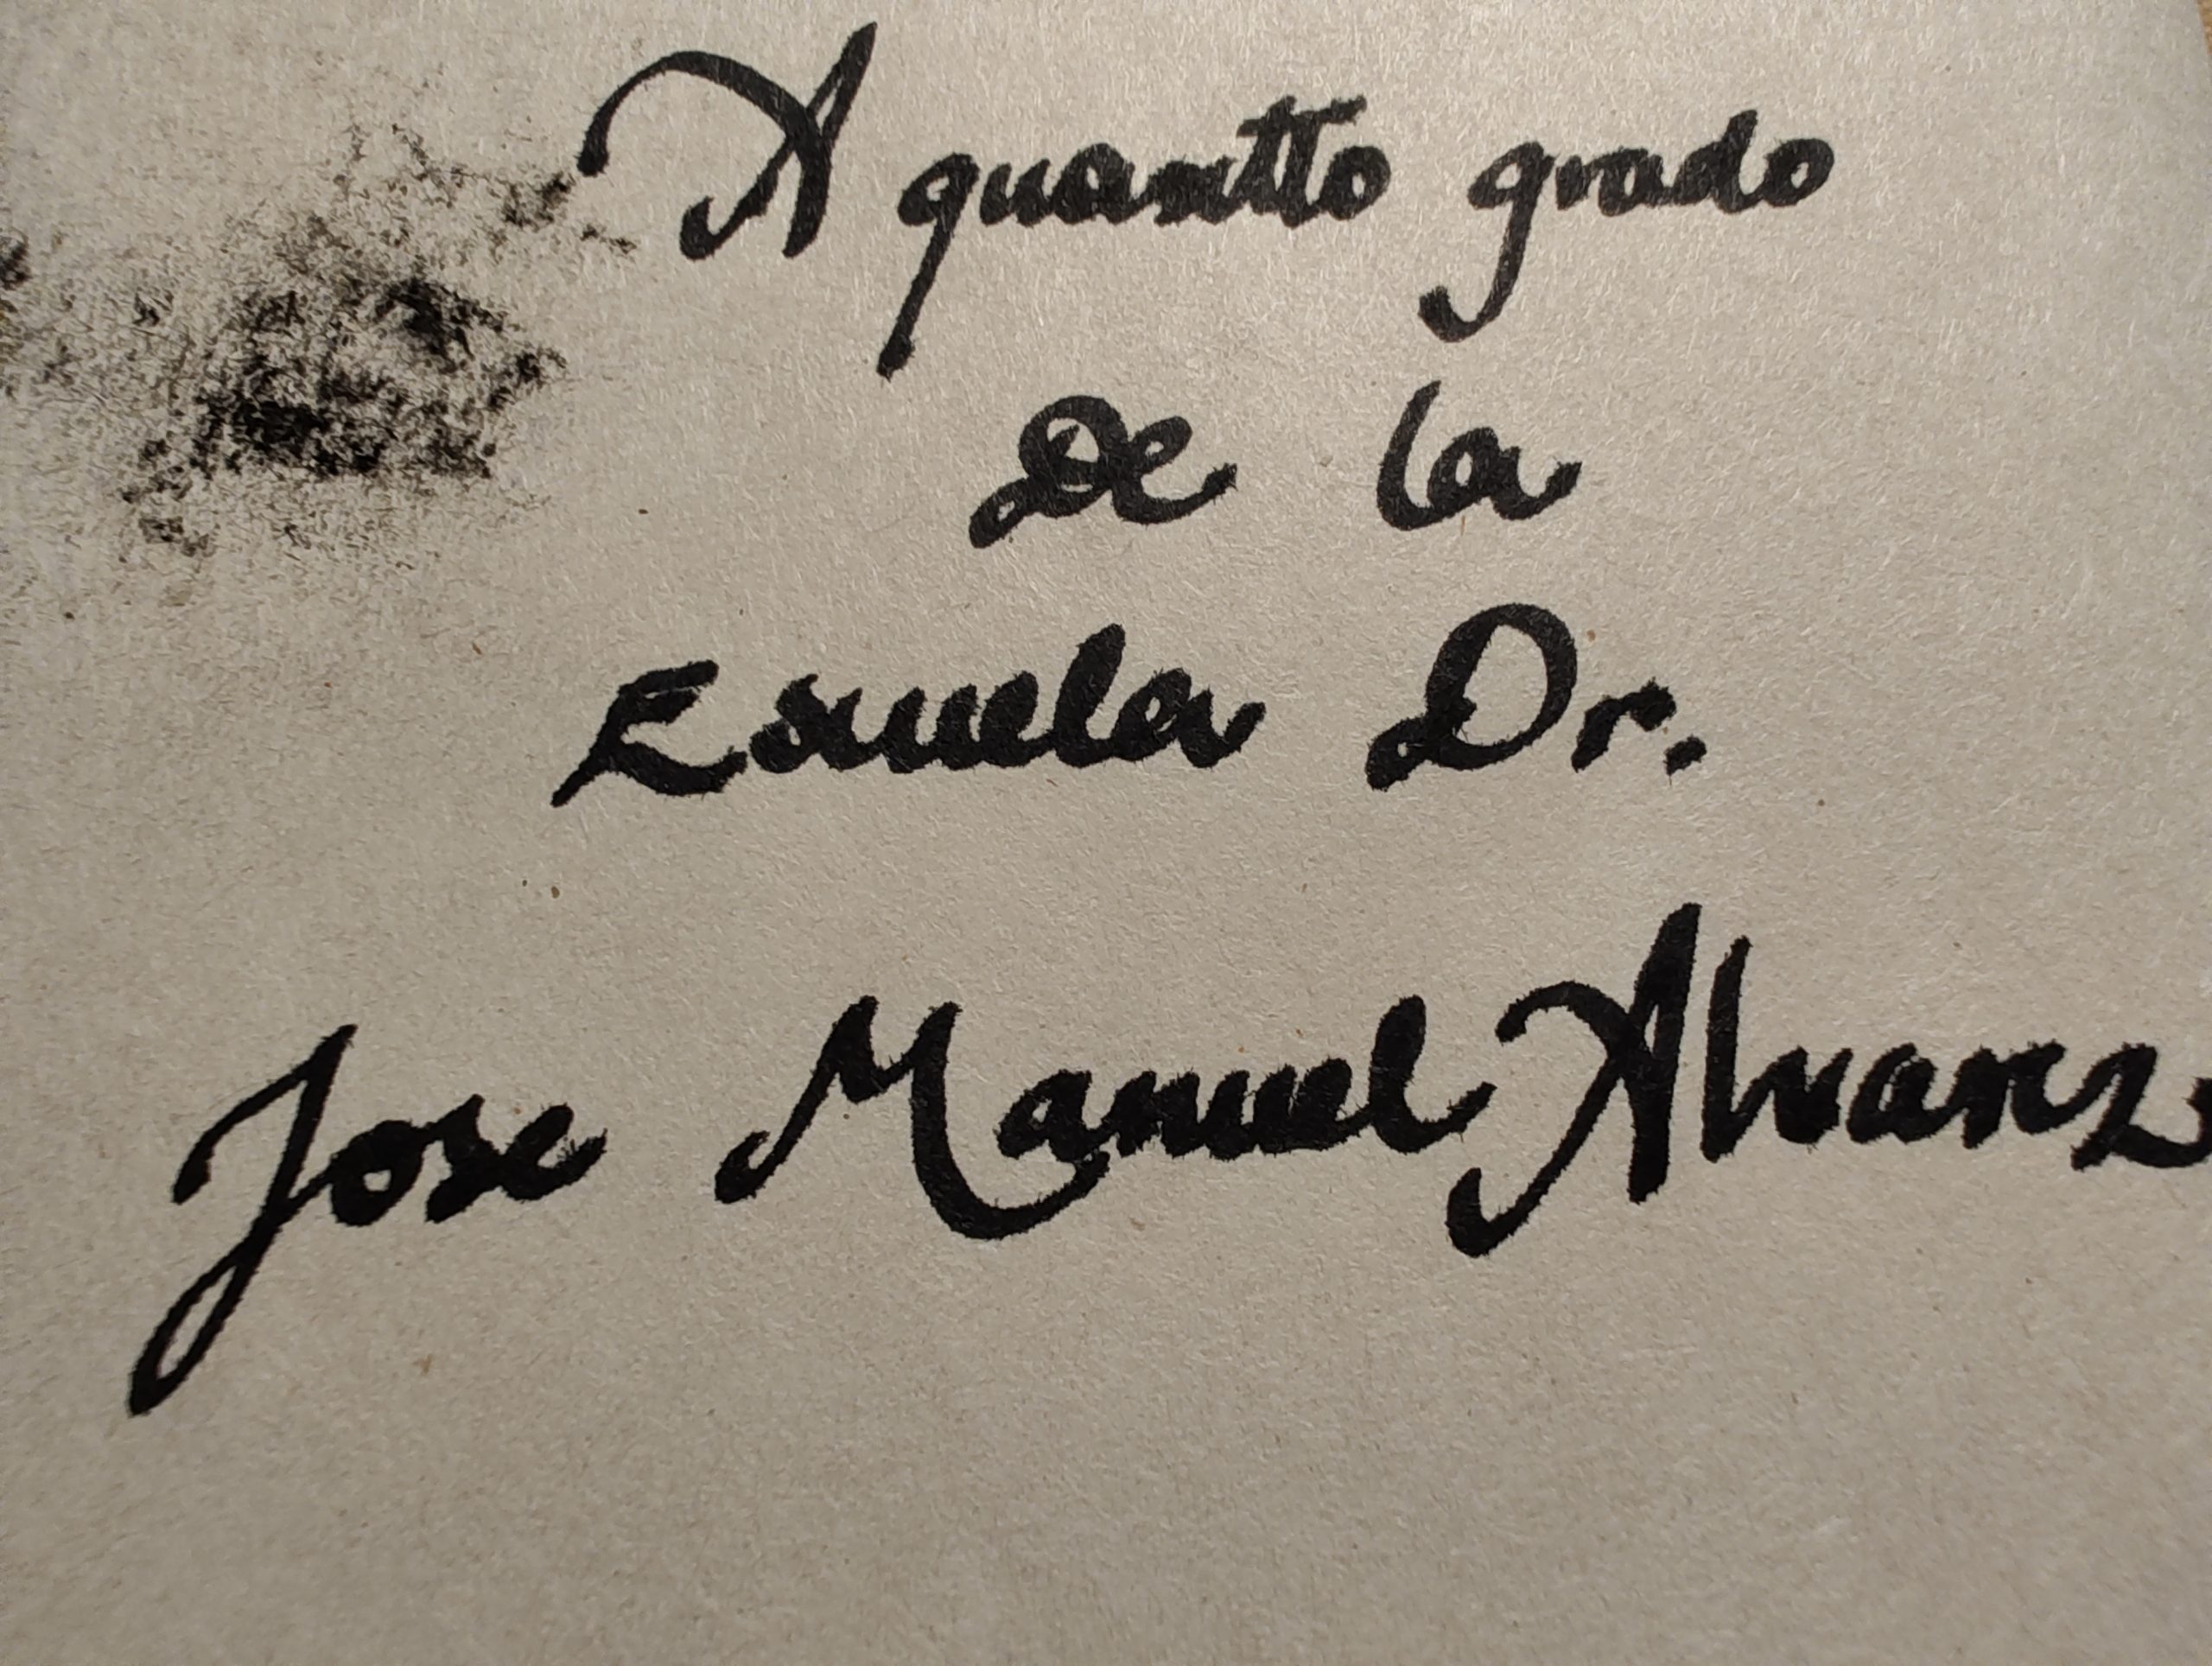 A quantto grado
De la
Esuela Dr.
Jose Manuel Alvarz